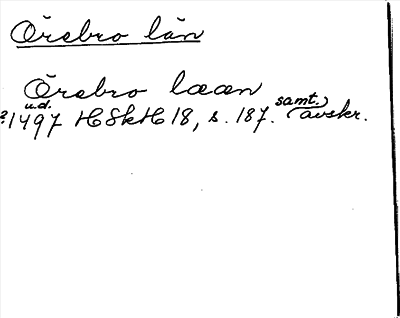 Örebro län
Örebro læn
u.d. samt.
?1497 HSkH 18, s. 187. (avskr.